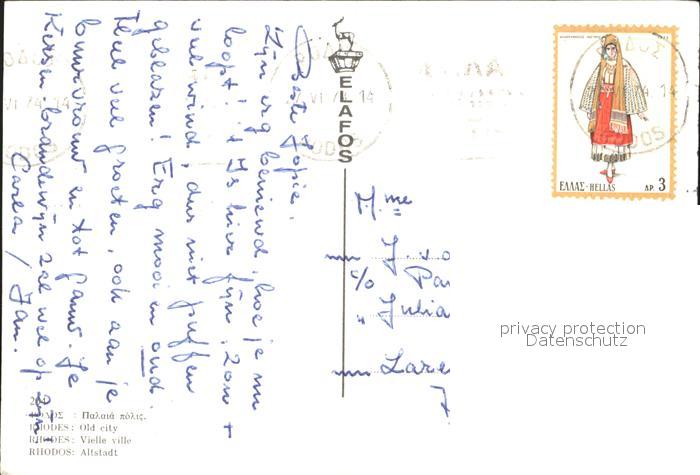 Beste Jopie,
Zijn erg benieuwd, hoe je nu
loopt! 't Is hier fijn, zon +
veel wind, dus niet puffen
geblazen! Erg mooi en oud.
Heel veel groeten, ook aan je
buurvrouw en tot gauw. Je
Kersen brandewijn zal wel op zijn!
Carla / Jan.
ELAFOS
ΡΟΔΟΣ
VI 74 14
RODOS
ΕΛΛΑΣ-HELLAS ΔΡ. 3
Mme
J
c/o Pa
" Julia
Lare
privacy protection
Datenschutz
ΡΟΔΟΣ : Παλαιά πόλις.
RHODES: Old city
RHODES: Vielle ville
RHODOS: Altstadt